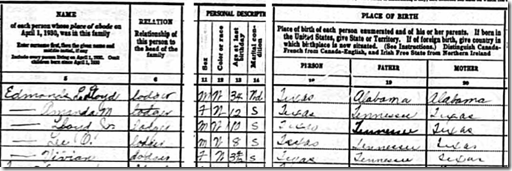 NAME RELATION PERSONAL DESCRIPT PLACE OF BIRTH
of each person whose place of abode on April 1, 1930, was in this family
Enter surname first, then the given name and middle initial, if any
Include every person living on April 1, 1930. Omit children born since April 1, 1930
Relationship of this person to the head of the family
Sex
Color or race
Age at last birthday
Marital condition
Place of birth of each person enumerated and of his or her parents. If born in the United States, give State or Territory. If of foreign birth, give country in which birthplace is now situated. (See Instructions.) Distinguish Canada-French from Canada-English, and Irish Free State from Northern Ireland
PERSON FATHER MOTHER
5 6 11 12 13 14 19 20
Lloyd lodger M 34 Texas Alabama Alabama
M lodger F 12 S Texas Tennessee Texas
Lloyd Jr lodger M 10 S Texas Tennessee Texas
Lee lodger M 8 S Texas Tennessee Texas
Vivian lodger F S Texas Tennessee Texas